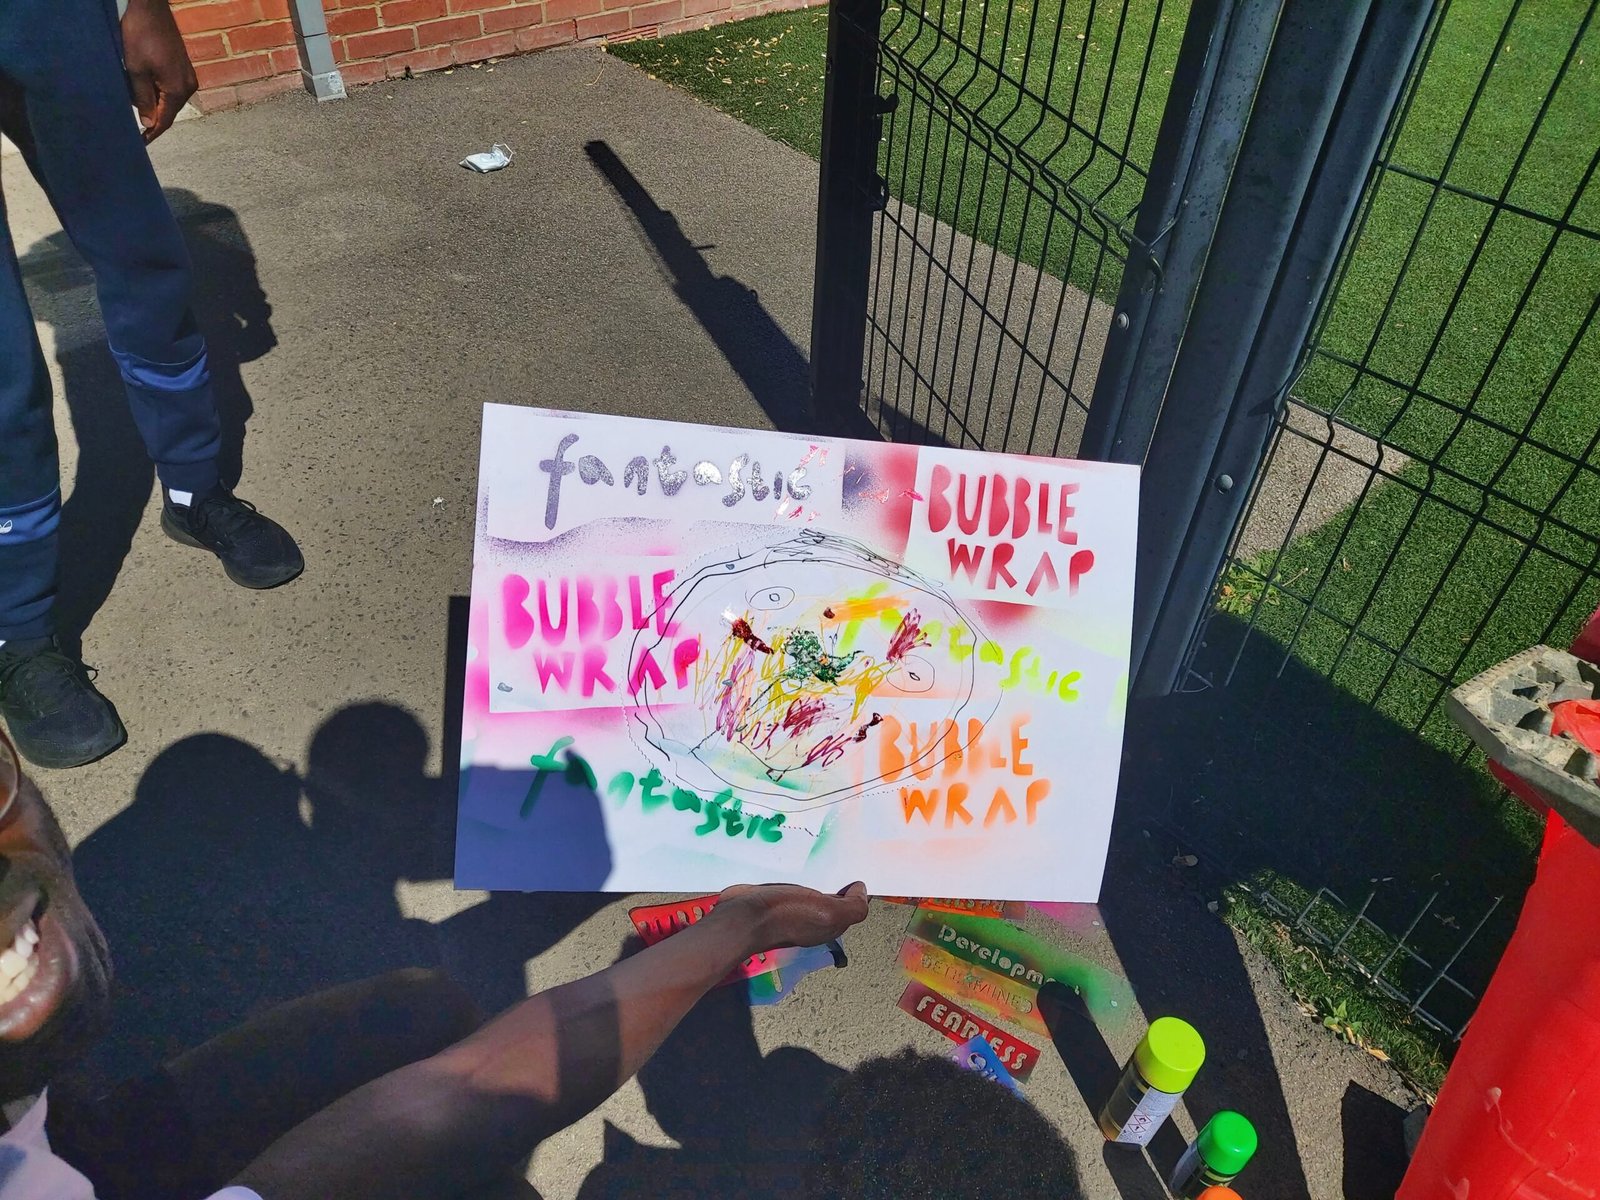 fantastic
BUBBLE
WRAP
BUBBLE
WRAP
fantastic
BUBBLE
WRAP
fantastic
Developm
DETERMINED
FEARLESS